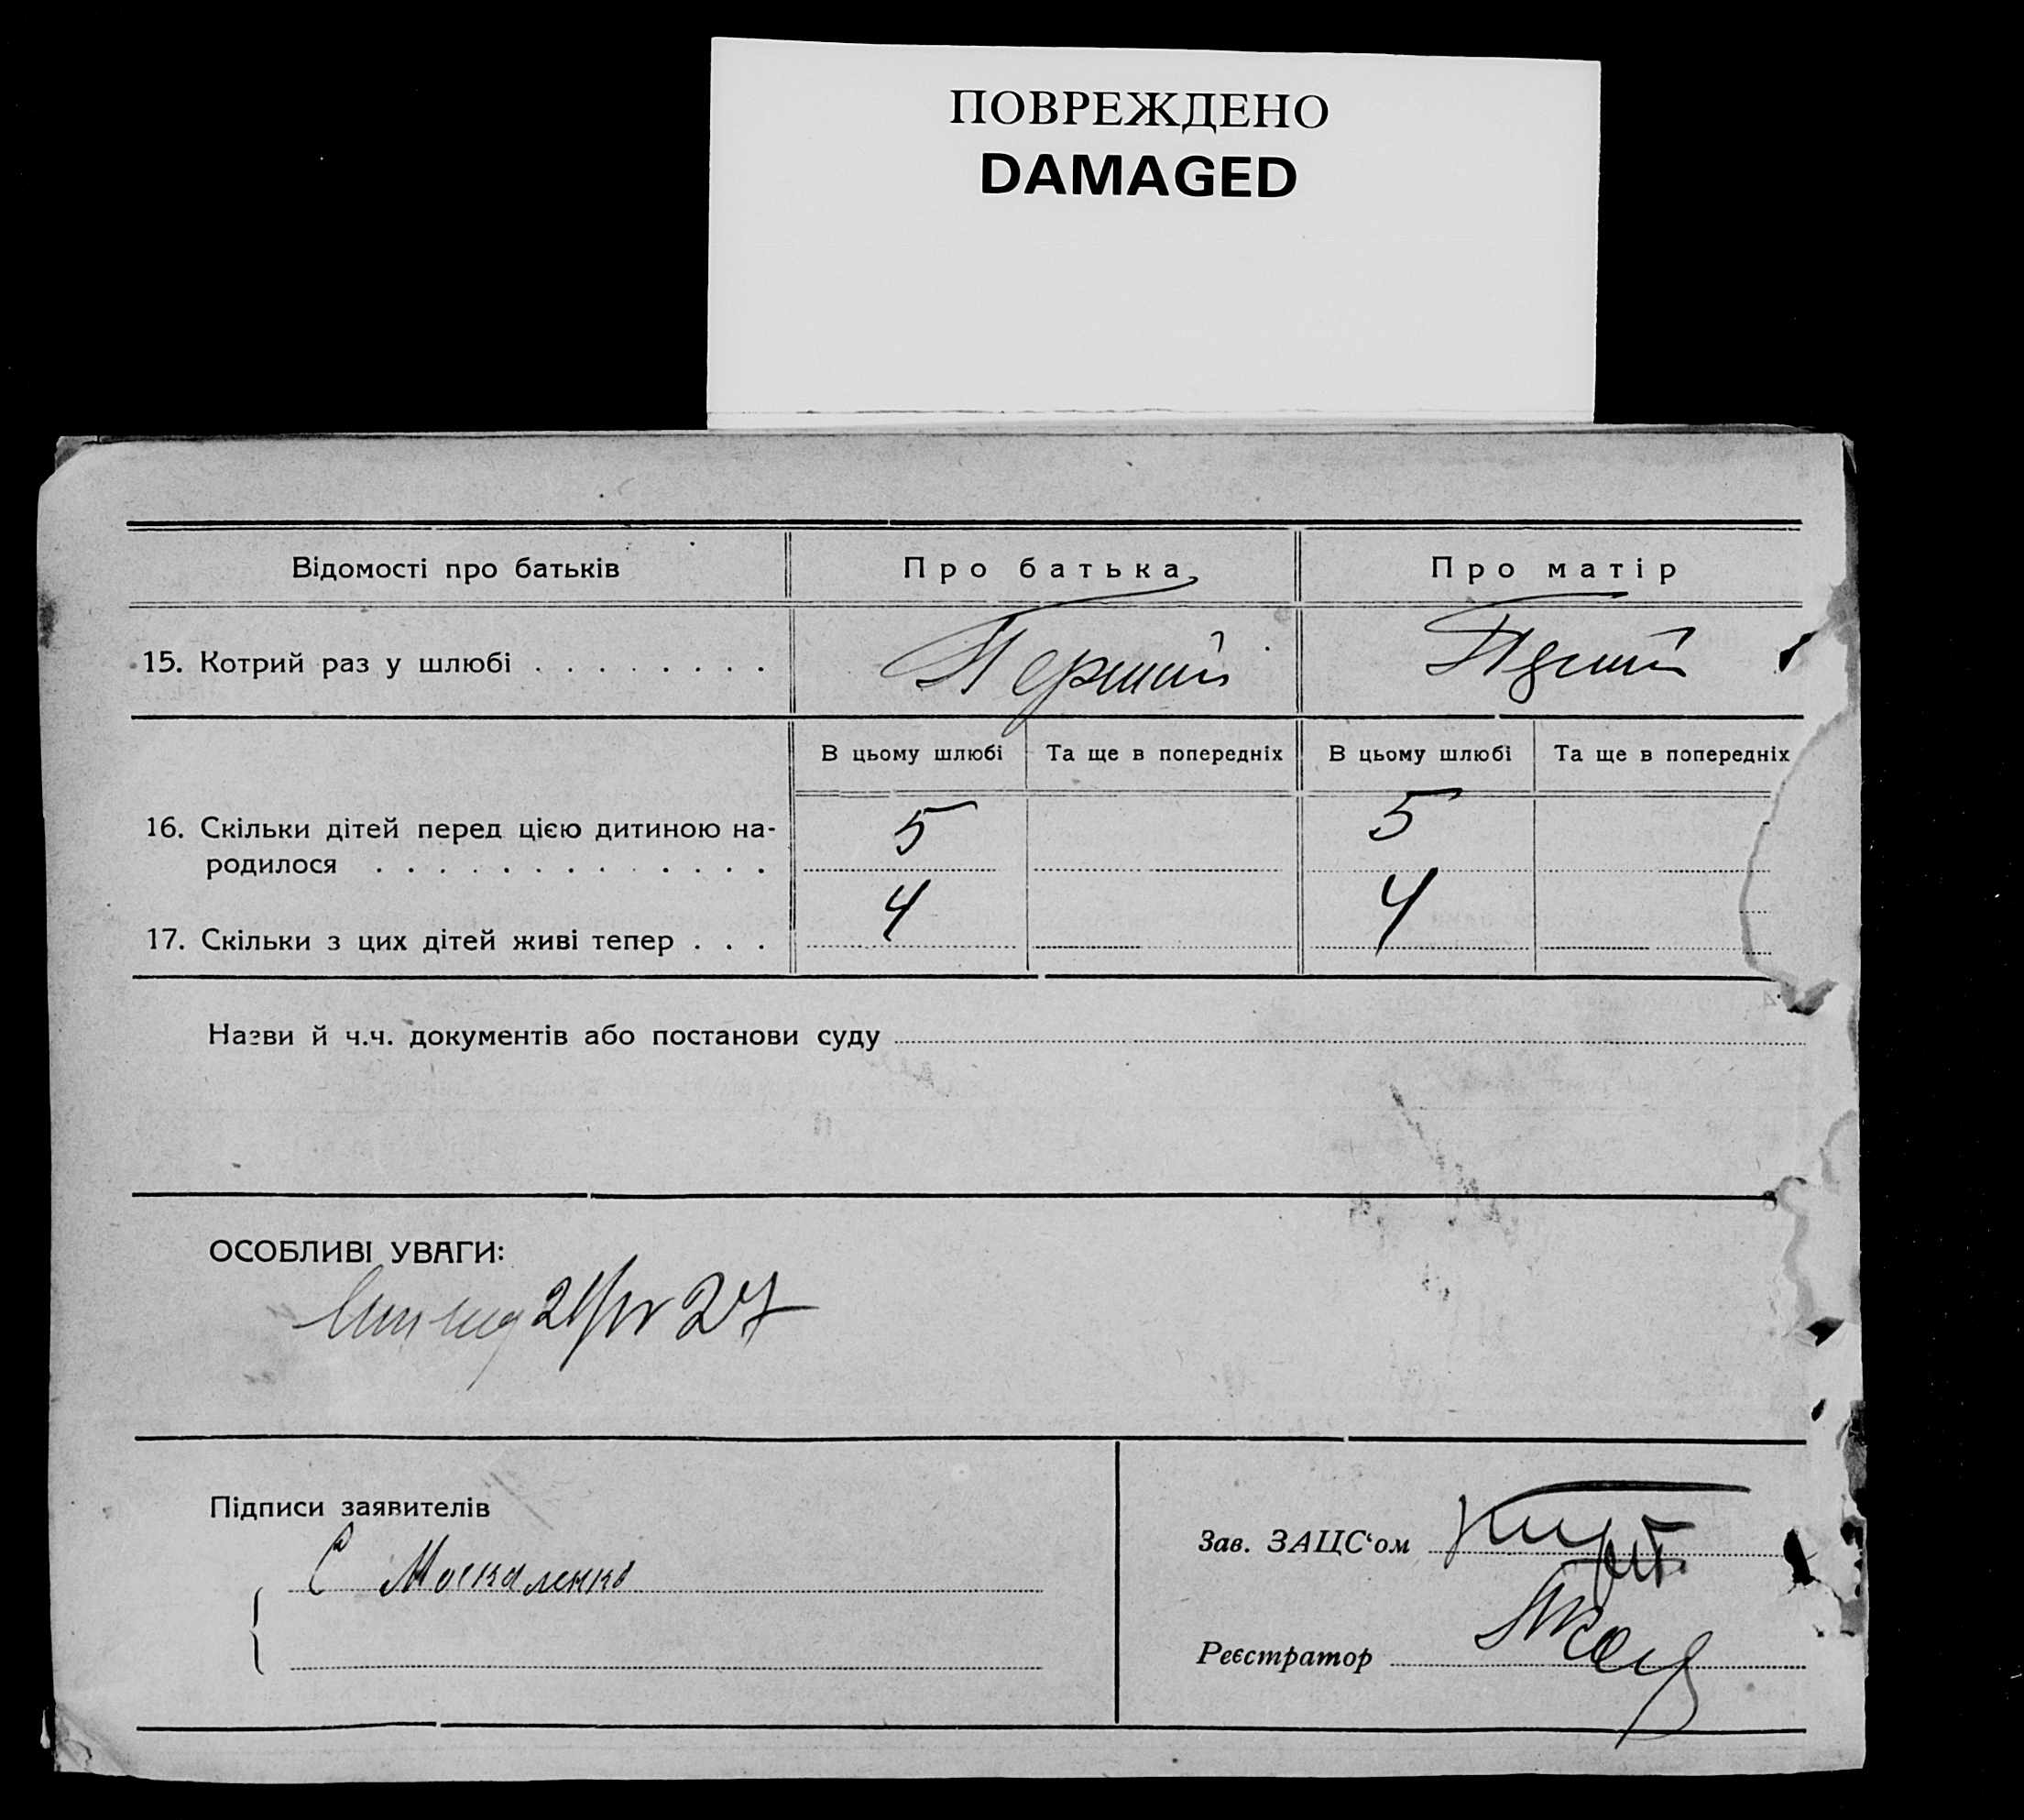 ПОВРЕЖДЕНО
DAMAGED
Відомості про батьків
Про батька
Про матір
15. Котрий раз у шлюбі . . . . . . . .
Перший
В цьому шлюбі
Та ще в попередніх
В цьому шлюбі
Та ще в попередніх
16. Скільки дітей перед цією дитиною на-
родилося . . . . . . . . . . . . .
5
5
17. Скільки з цих дітей живі тепер . . .
4
4
Назви й ч.ч. документів або постанови суду
ОСОБЛИВІ УВАГИ:
27
Підписи заявителів
С Москаленко
Зав. ЗАЦС‘ом
Реєстратор